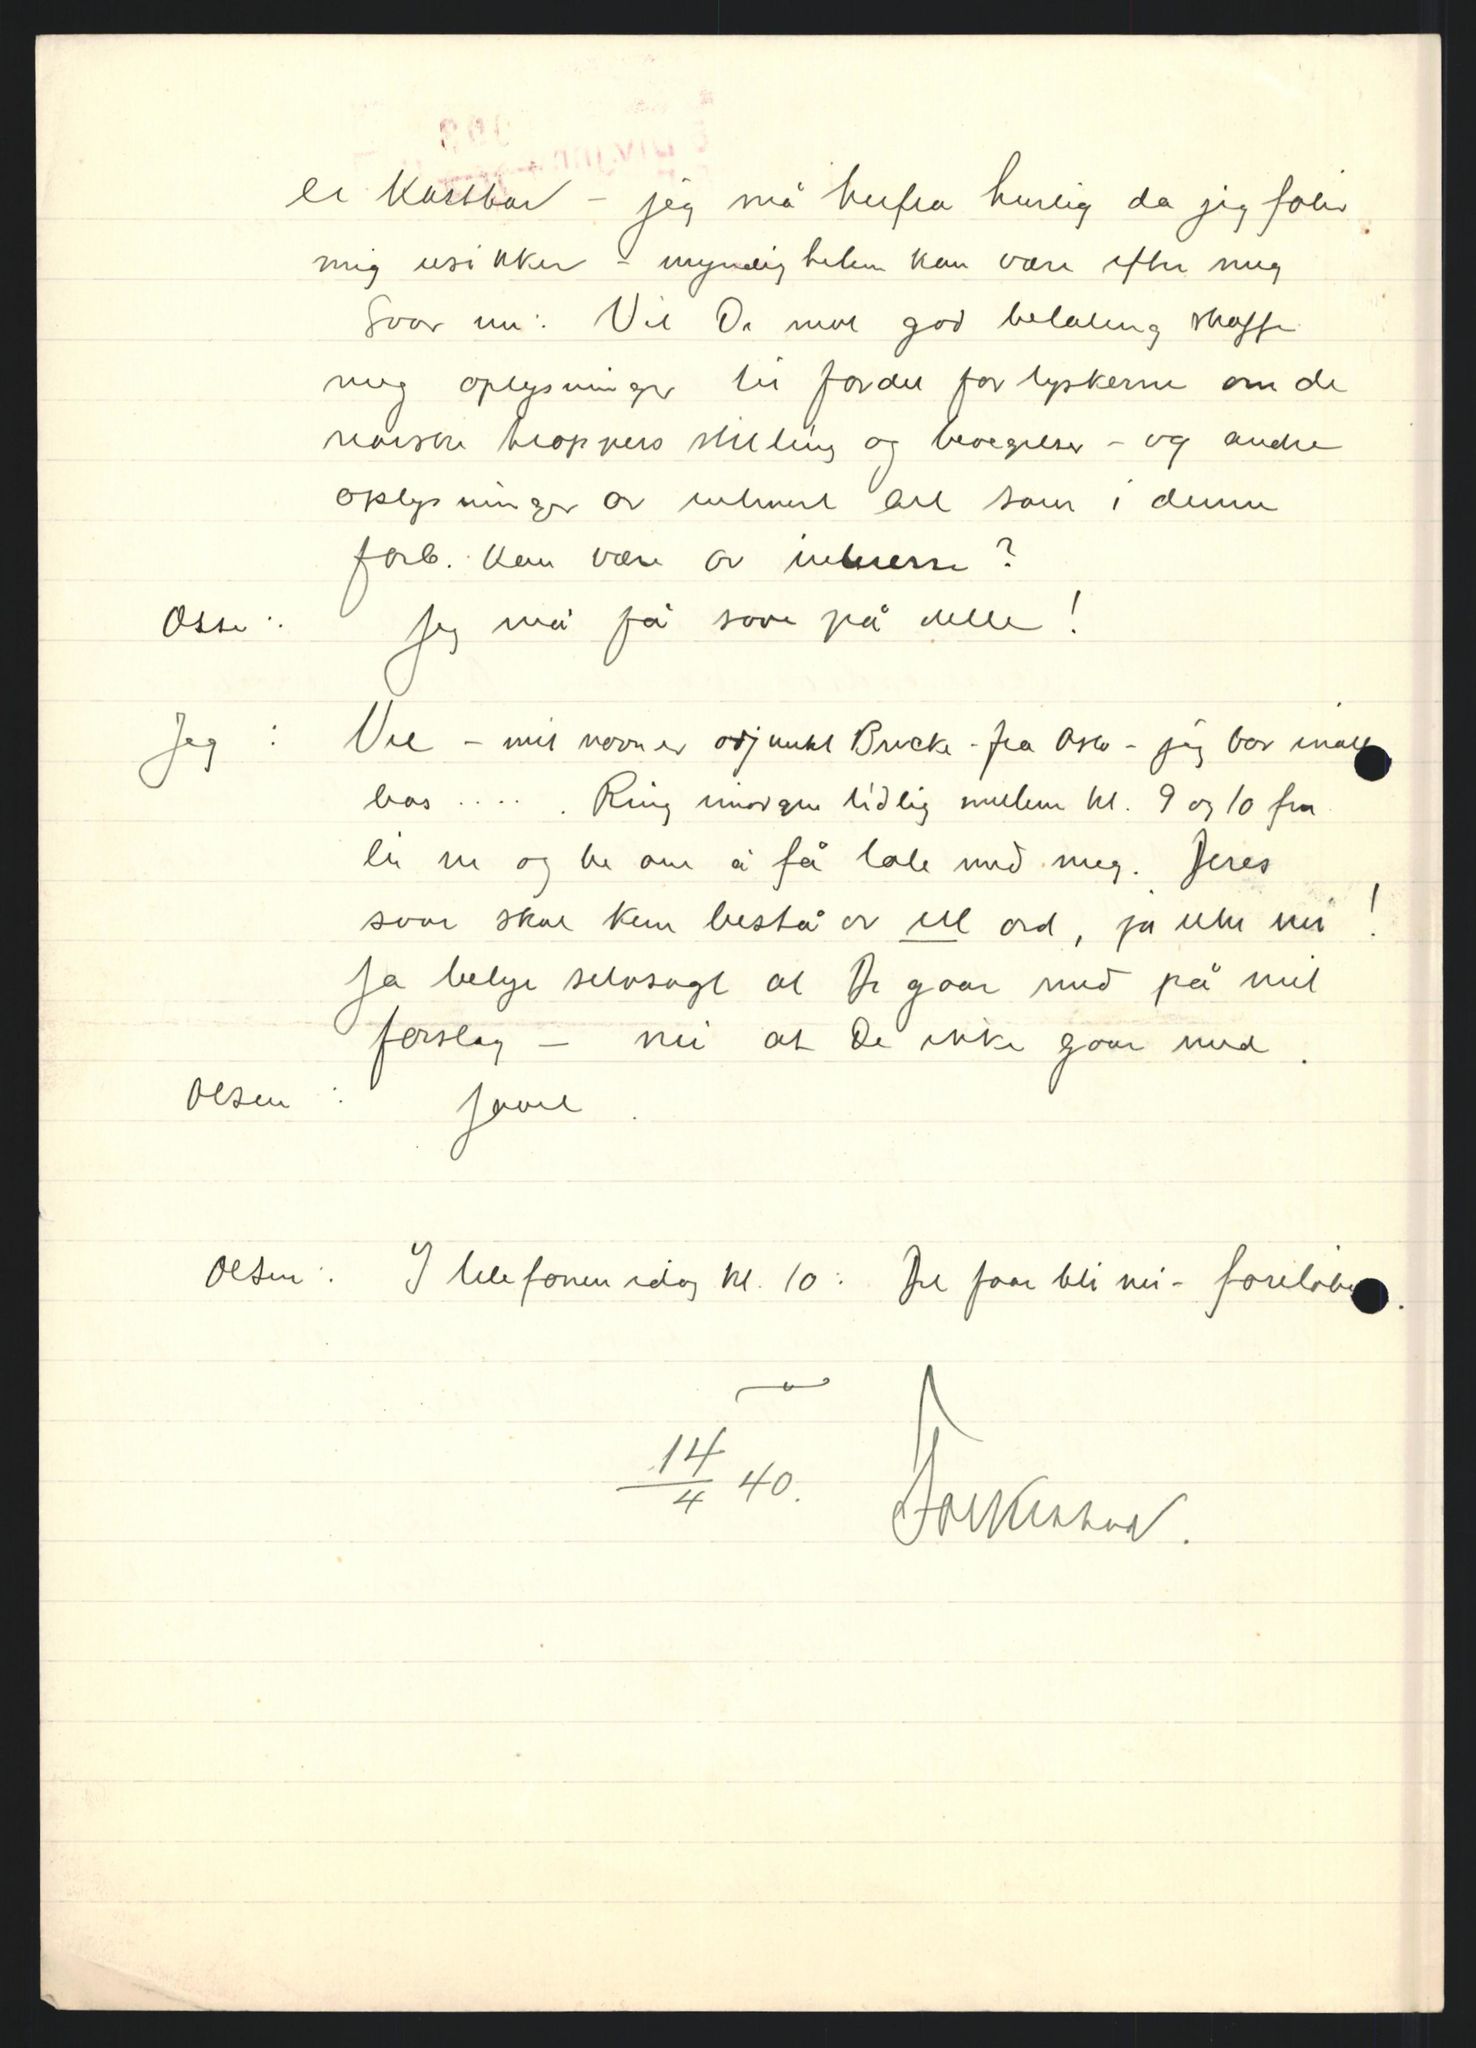 er kostbar – jeg må herfra hurtig da jeg føler
mig usikker – myndigheten kan være efter meg
Svar nu: Vil De mot god betaling skaffe
meg oplysninger til fordel for tyskerne om de
norske troppers stilling og bevegelser – og andre
oplysninger av art som i denne
forb. kan være av interesse?
Olsen: Jeg må få sove på dette!
Jeg: Vel – mit navn er adjunkt Brocke – fra Oslo – jeg bor inatt
hos ..... Ring imorgen tidlig mellem kl. 9 og 10 fra
og be om å få tale med meg. Deres
svar skal kun bestå av ett ord, ja eller nei!
Ja betyr selvsagt at De gaar med på mit
forslag – nei at De ikke gaar med.
Olsen: Javel.
Olsen: I telefonen idag kl. 10: Det faar bli nei – foreløbig.
14/4 40.